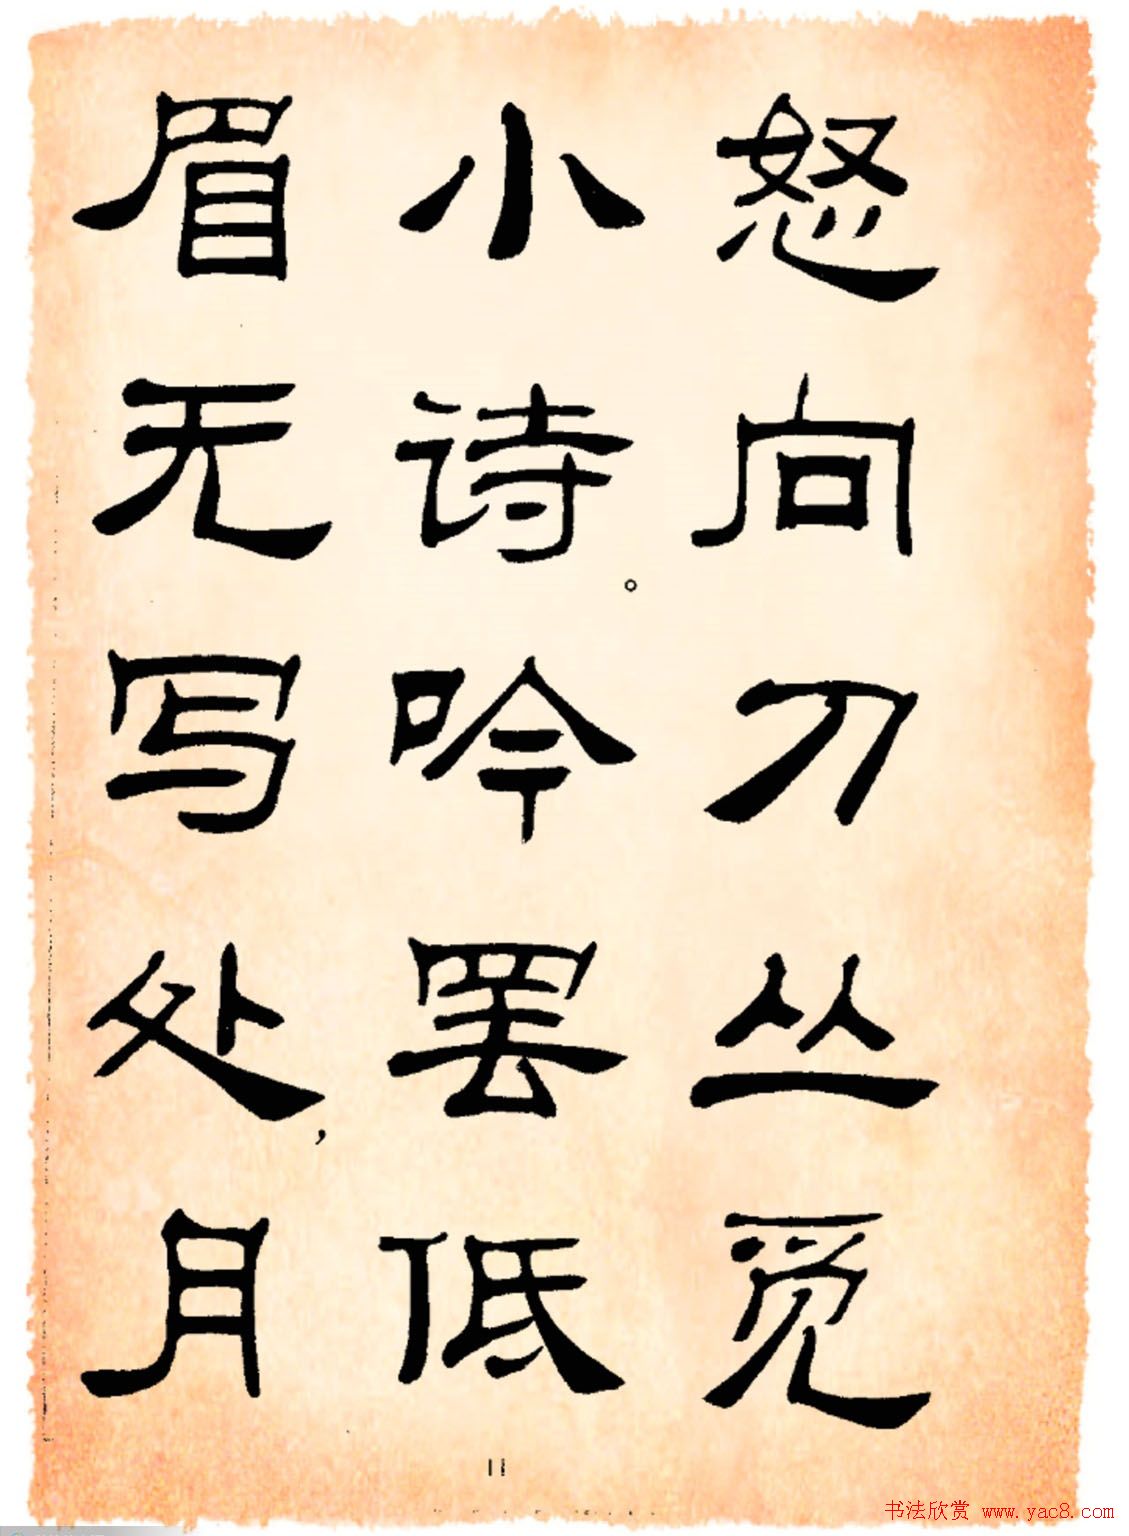 怒向刀丛觅
小诗。吟罢低
眉无写处，月
11
书法欣赏 www.yac8.com